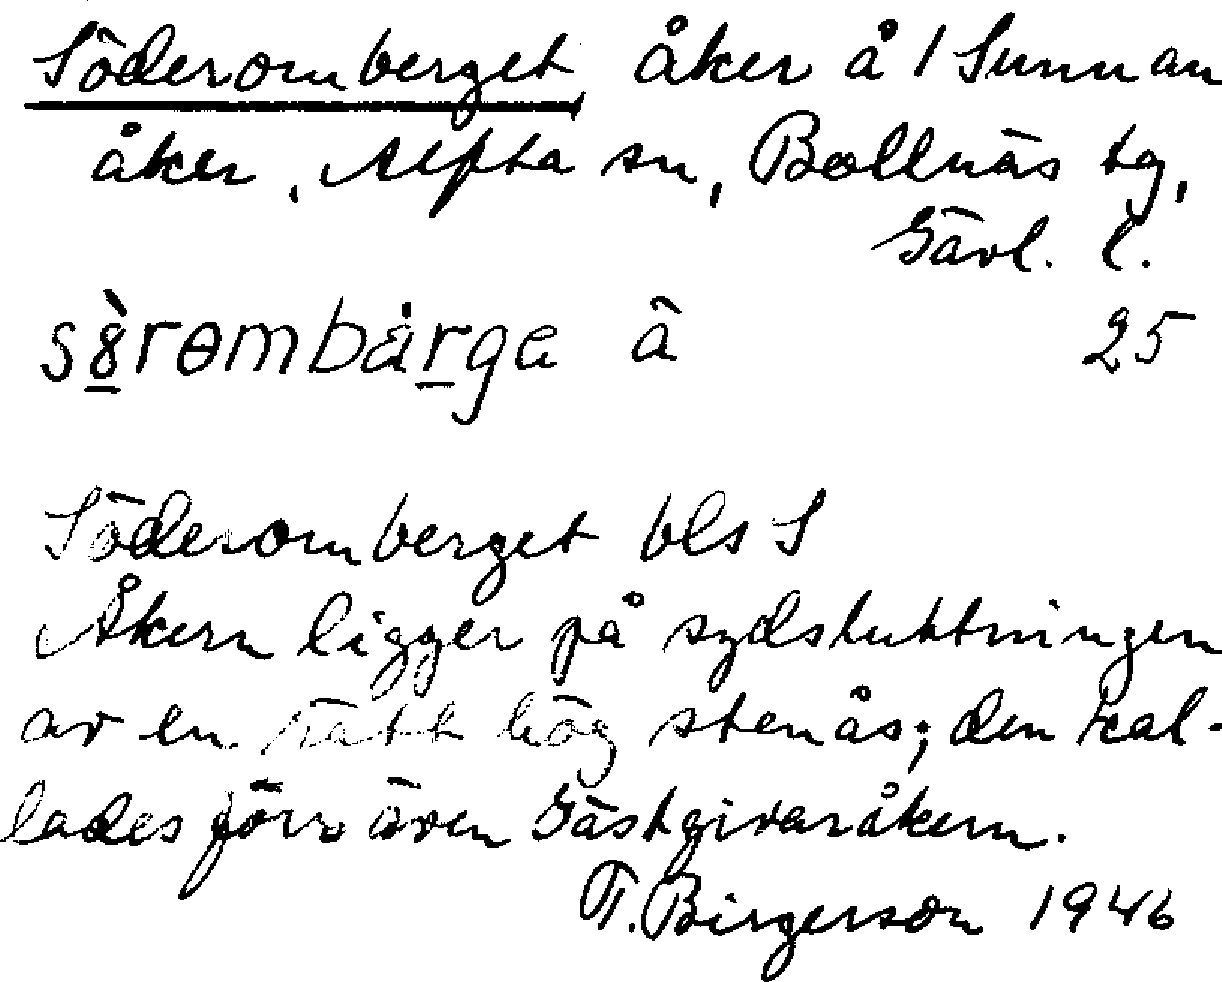 Söderomberget åker å 1 Sunnan
åker, Alfta sn, Bollnäs tg,
Gävl. l.
sȯ̀rɵmbårga â 25
Söderomberget bls S
Åkern ligger på sydsluttningen
av en rätt hög stenås; den kal-
lades förr även Gästgivaråkern.
T. Birgerson 1946